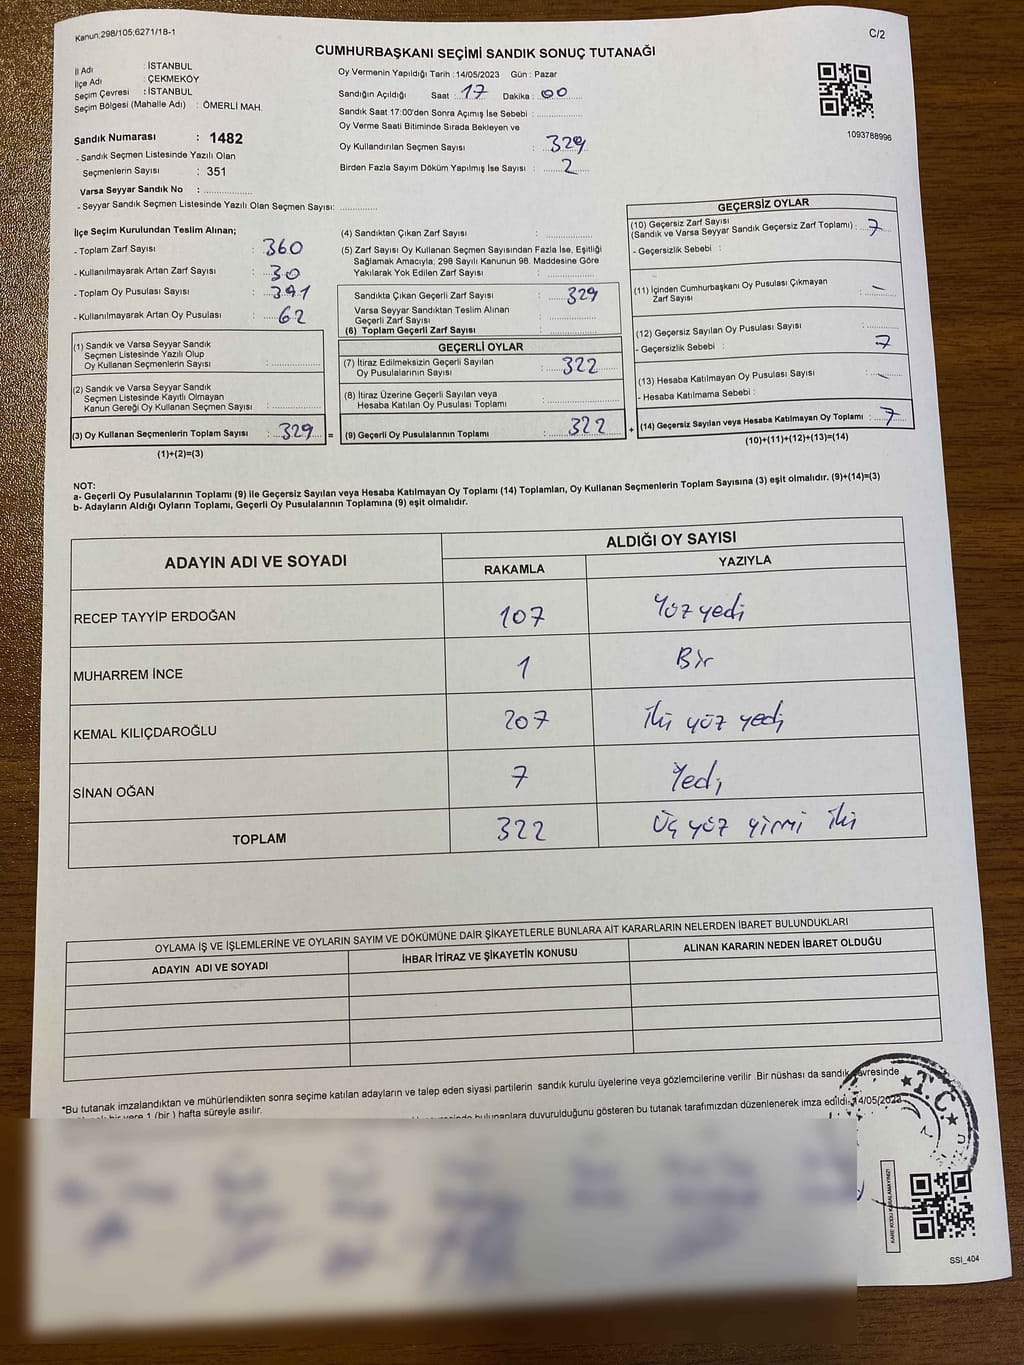 Kanun;298/105;6271/18-1
C/2
CUMHURBAŞKANI SEÇİMİ SANDIK SONUÇ TUTANAĞI
İl Adı : İSTANBUL
İlçe Adı : ÇEKMEKÖY
Seçim Çevresi : İSTANBUL
Seçim Bölgesi (Mahalle Adı) : ÖMERLİ MAH.
Sandık Numarası : 1482
- Sandık Seçmen Listesinde Yazılı Olan
Seçmenlerin Sayısı : 351
Varsa Seyyar Sandık No :
- Seyyar Sandık Seçmen Listesinde Yazılı Olan Seçmen Sayısı:
Oy Vermenin Yapıldığı Tarih :14/05/2023 Gün : Pazar
Sandığın Açıldığı Saat : 17 Dakika : 00
Sandık Saat 17:00'den Sonra Açımış İse Sebebi :
Oy Verme Saati Bitiminde Sırada Bekleyen ve
Oy Kullandırılan Seçmen Sayısı : 329
Birden Fazla Sayım Döküm Yapılmış İse Sayısı : 2
1093788996
İlçe Seçim Kurulundan Teslim Alınan;
- Toplam Zarf Sayısı : 360
- Kullanılmayarak Artan Zarf Sayısı : 30
- Toplam Oy Pusulası Sayısı : 391
- Kullanılmayarak Artan Oy Pusulası : 62
(1) Sandık ve Varsa Seyyar Sandık
Seçmen Listesinde Yazılı Olup
Oy Kullanan Seçmenlerin Sayısı :
(2) Sandık ve Varsa Seyyar Sandık
Seçmen Listesinde Kayıtlı Olmayan
Kanun Gereği Oy Kullanan Seçmen Sayısı :
(3) Oy Kullanan Seçmenlerin Toplam Sayısı : 329 =
(1)+(2)=(3)
(4) Sandıktan Çıkan Zarf Sayısı :
(5) Zarf Sayısı Oy Kullanan Seçmen Sayısından Fazla İse, Eşitliği
Sağlamak Amacıyla; 298 Sayılı Kanunun 98. Maddesine Göre
Yakılarak Yok Edilen Zarf Sayısı :
Sandıkta Çıkan Geçerli Zarf Sayısı : 329
Varsa Seyyar Sandıktan Teslim Alınan
Geçerli Zarf Sayısı :
(6) Toplam Geçerli Zarf Sayısı :
GEÇERLİ OYLAR
(7) İtiraz Edilmeksizin Geçerli Sayılan
Oy Pusulalarının Sayısı : 322
(8) İtiraz Üzerine Geçerli Sayılan veya
Hesaba Katılan Oy Pusulası Toplamı :
(9) Geçerli Oy Pusulalarının Toplamı : 322 +
GEÇERSİZ OYLAR
(10) Geçersiz Zarf Sayısı
(Sandık ve Varsa Seyyar Sandık Geçersiz Zarf Toplamı) : 7
- Geçersizlik Sebebi :
(11) İçinden Cumhurbaşkanı Oy Pusulası Çıkmayan
Zarf Sayısı : -
(12) Geçersiz Sayılan Oy Pusulası Sayısı :
- Geçersizlik Sebebi : 7
(13) Hesaba Katılmayan Oy Pusulası Sayısı : -
- Hesaba Katılmama Sebebi :
(14) Geçersiz Sayılan veya Hesaba Katılmayan Oy Toplamı : 7
(10)+(11)+(12)+(13)=(14)
NOT:
a- Geçerli Oy Pusulalarının Toplamı (9) ile Geçersiz Sayılan veya Hesaba Katılmayan Oy Toplamı (14) Toplamları, Oy Kullanan Seçmenlerin Toplam Sayısına (3) eşit olmalıdır. (9)+(14)=(3)
b- Adayların Aldığı Oyların Toplamı, Geçerli Oy Pusulalarının Toplamına (9) eşit olmalıdır.
ADAYIN ADI VE SOYADI
ALDIĞI OY SAYISI
RAKAMLA YAZIYLA
RECEP TAYYİP ERDOĞAN 107 Yüz yedi
MUHARREM İNCE 1 Bir
KEMAL KILIÇDAROĞLU 207 İki yüz yedi
SİNAN OĞAN 7 Yedi
TOPLAM 322 Üç yüz yirmi iki
OYLAMA İŞ VE İŞLEMLERİNE VE OYLARIN SAYIM VE DÖKÜMÜNE DAİR ŞİKAYETLERLE BUNLARA AİT KARARLARIN NELERDEN İBARET BULUNDUKLARI
ADAYIN ADI VE SOYADI İHBAR İTİRAZ VE ŞİKAYETİN KONUSU ALINAN KARARIN NEDEN İBARET OLDUĞU
*Bu tutanak imzalandıktan ve mühürlendikten sonra seçime katılan adayların ve talep eden siyasi partilerin sandık kurulu üyelerine veya gözlemcilerine verilir .Bir nüshası da sandık çevresinde
bir yere 1 (bir ) hafta süreyle asılır.
bulunanlara duyurulduğunu gösteren bu tutanak tarafımızdan düzenlenerek imza edildi. 14/05/2023
T.C.
KARE KODU KARALAMAYINIZ!
SSI_404